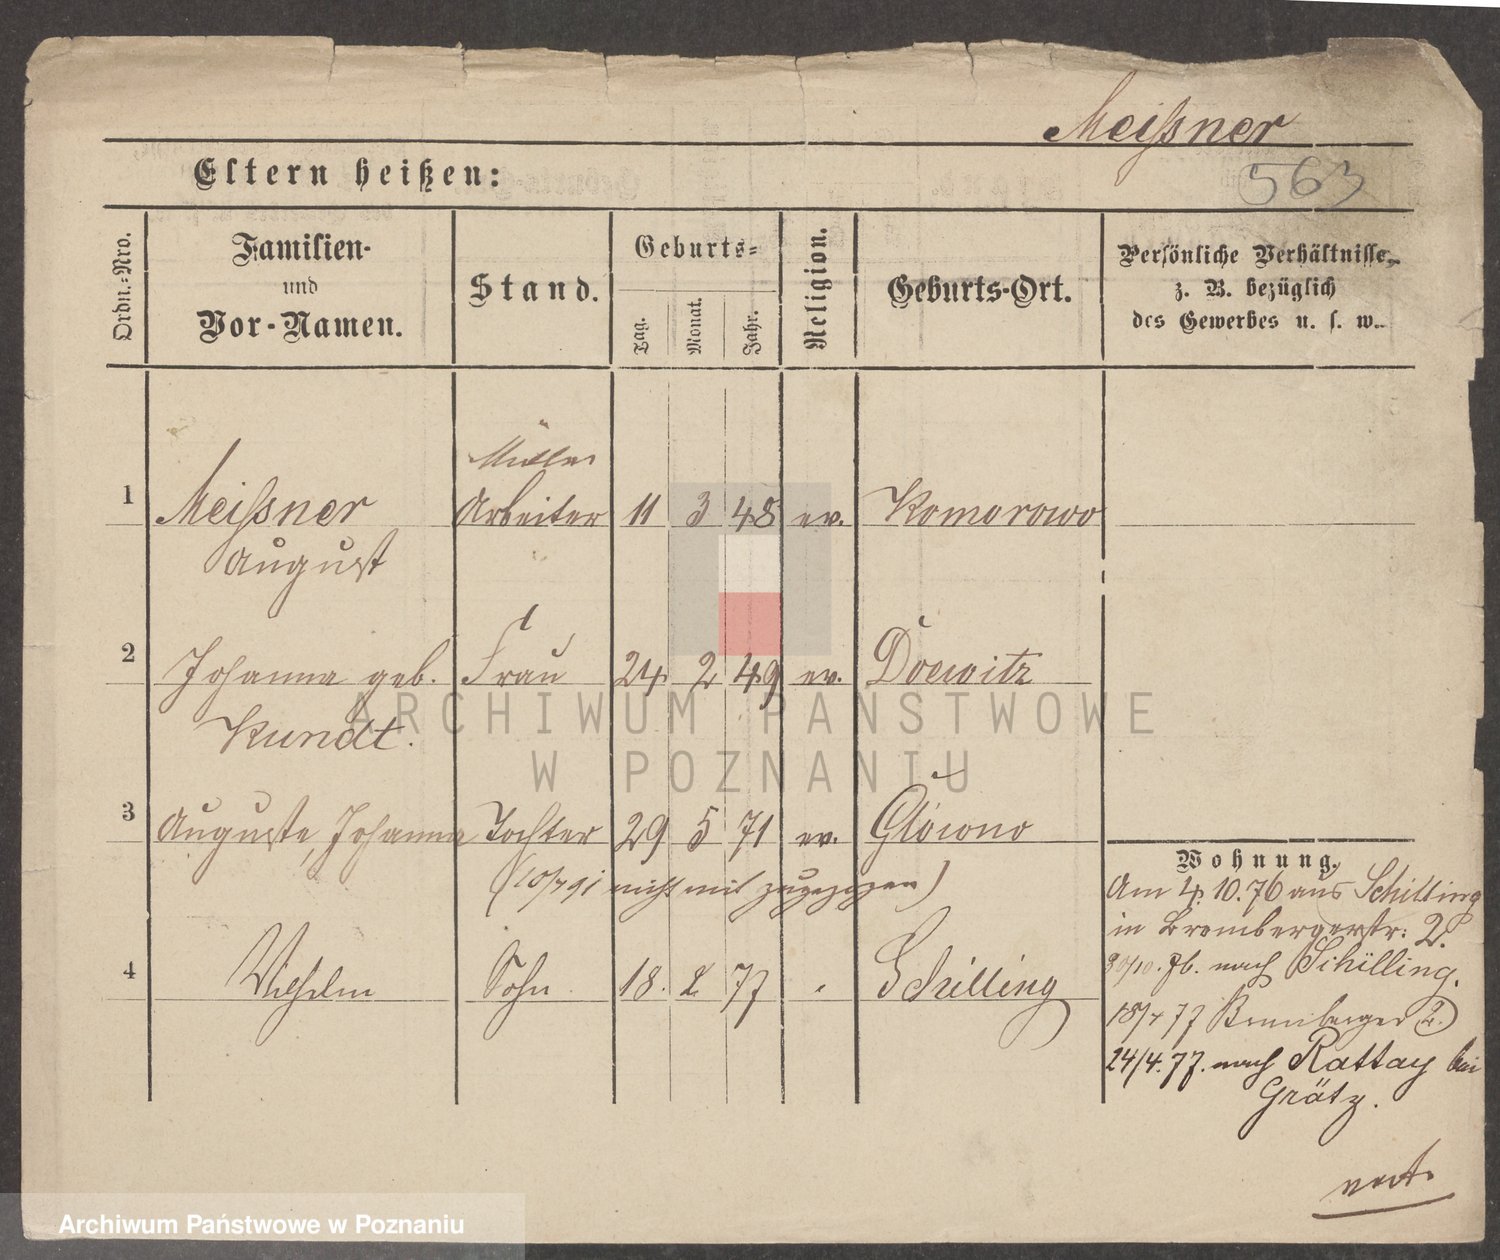 Meißner
563
Eltern heißen:
Ordn.-Nro.
Familien-
und
Vor-Namen.
Stand.
Geburts-
Tag.
Monat.
Jahr.
Religion.
Geburts-Ort.
Persönliche Verhältnisse,
z. B. bezüglich
des Gewerbes u. s. w.
Müller
1 Meißner Arbeiter 11 3 48 ev. Komorowo
August
2 Johanna geb. Frau 24 2 49 ev. Doewitz
Kundt.
3 Auguste, Johanna Tochter 29 5 71 ev. Glówno
nicht mit zugezogen)
4 Wilhelm Sohn 18. 2 77 Schilling
Wohnung.
Am 4. 10. 76 aus Schilling
in Brombergerstr: 2.
30/10. 76. nach Schilling.
18/4 77 Bromberger 2.
24/4. 77. nach Rattay bei
Grätz.
ARCHIWUM PAŃSTWOWE
W POZNANIU
Archiwum Państwowe w Poznaniu